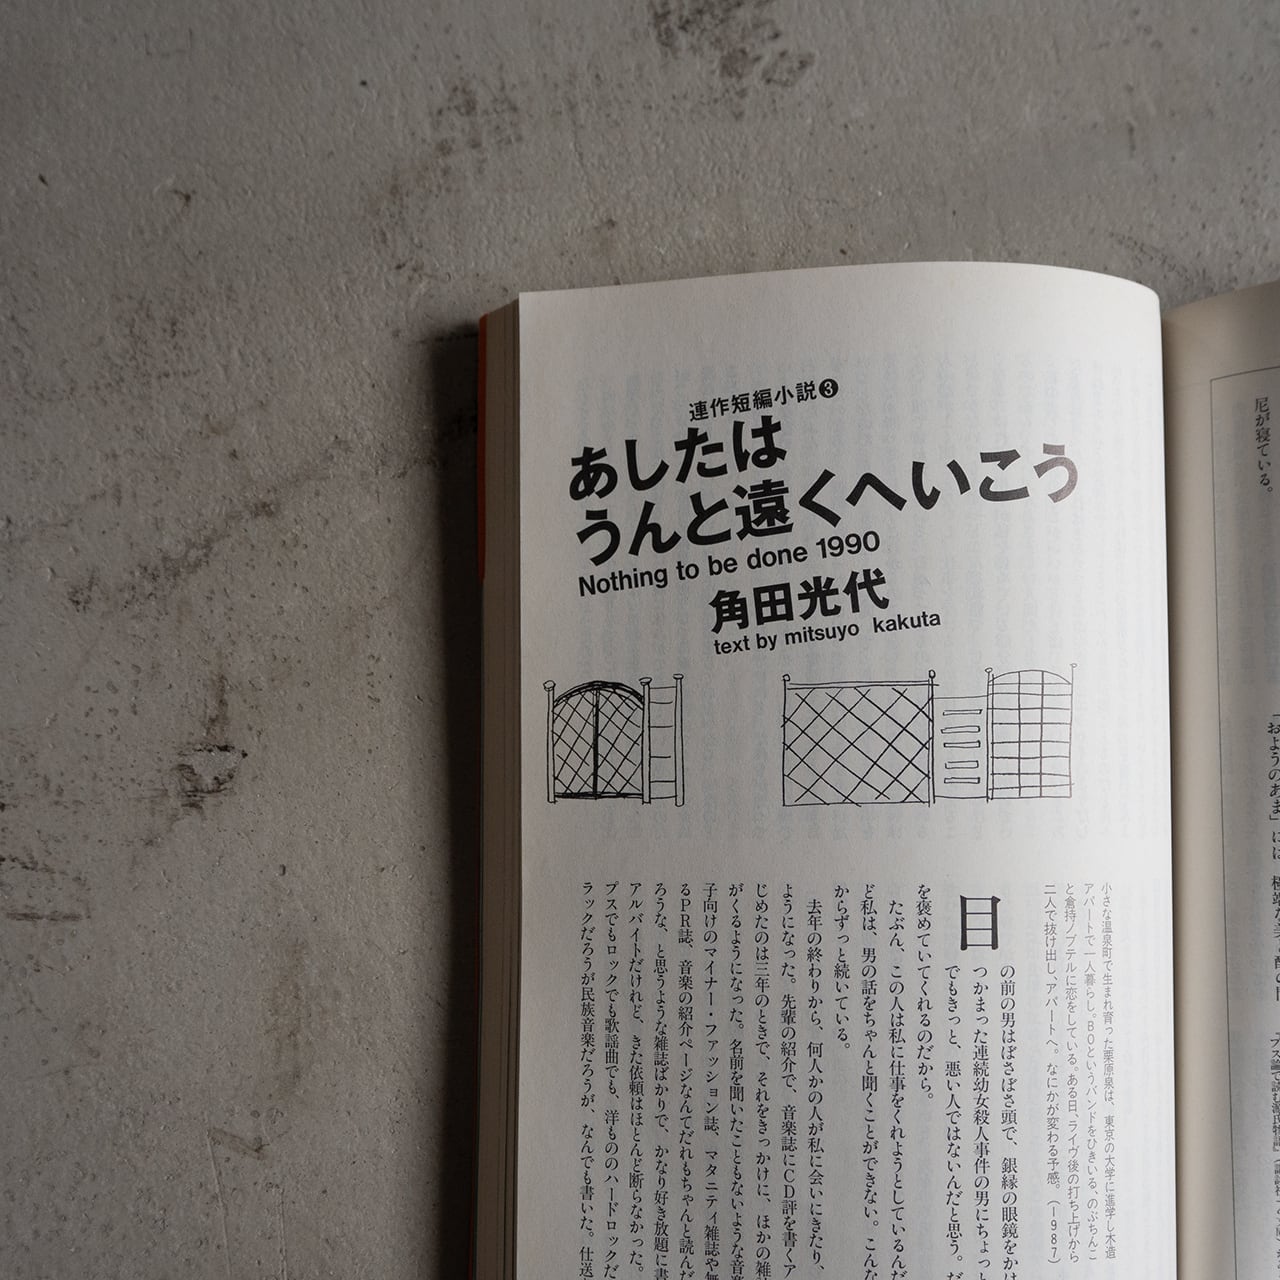 連作短編小説❸
あしたは
うんと遠くへいこう
Nothing to be done 1990
角田光代
text by mitsuyo kakuta
小さな温泉町で生まれ育った栗原泉は、東京の大学に進学し木造
アパートで一人暮らし。BOというバンドをひきいる、のぶちんこ
と倉持ノブテルに恋をしている。ある日、ライヴ後の打ち上げから
二人で抜け出し、アパートへ。なにかが変わる予感。(1987)
目
の前の男はぼさぼさ頭で、銀縁の眼鏡をかけ
つかまった連続幼女殺人事件の男にちょっと
でもきっと、悪い人ではないんだと思う。だ
を褒めていてくれるのだから。
たぶん、この人は私に仕事をくれようとしているんだ
ど私は、男の話をちゃんと聞くことができない。こんな
からずっと続いている。
去年の終わりから、何人かの人が私に会いにきたり、
ようになった。先輩の紹介で、音楽誌にCD評を書くア
じめたのは三年のときで、それをきっかけに、ほかの雑
がくるようになった。名前を聞いたこともないような音楽
子向けのマイナー・ファッション誌、マタニティ雑誌や無
るPR誌、音楽の紹介ページなんてだれもちゃんと読んだ
ろうな、と思うような雑誌ばかりで、かなり好き放題に書
アルバイトだけれど、きた依頼はほとんど断らなかった。
プスでもロックでも歌謡曲でも、洋もののハードロックだ
ラックだろうが民族音楽だろうが、なんでも書いた。仕送
尼が寝ている。
「おようのあま」には、